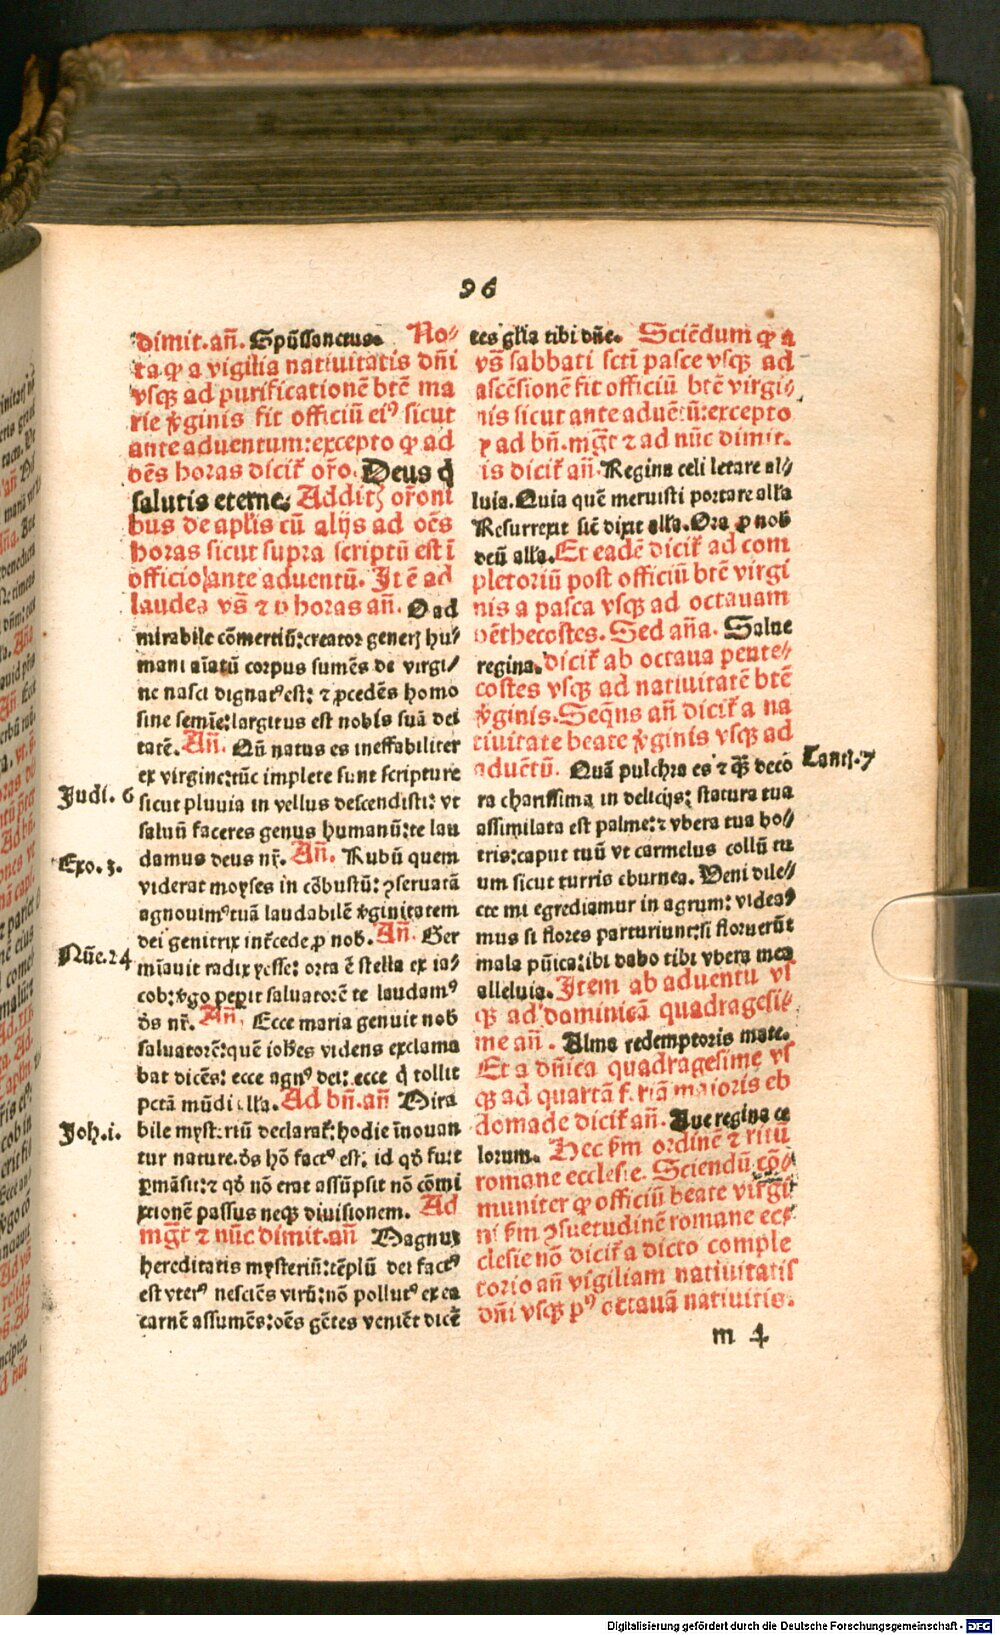 96
dimit. añ. Spūssanctus. No⸗
ta ꝙ a vigilia natiuitatis dñi
vsqꝫ ad purificationē btē ma
rie v̾ginis fit officiū eiꝰ sicut
ante aduentum: excepto ꝙ ad
oēs horas dicit᷑ or̄o. Deus q̇
salutis eterne. Additꝫ or̄oni
bus de aplīs cū alijs ad oēs
horas sicut supra scriptū est ī
officio ante aduentū. Itē ad
laudes vs̄ ⁊ ꝑ horas añ. O ad
mirabile cōmertiū: creator generꝫ hu⸗
mani aīatū corpus sumēs de virgi⸗
ne nasci dignatꝰ est: ⁊ ꝓcedēs homo
sine semīe: largitus est nobis suā dei
tatē. Añ. Qū natus es ineffabiliter
ex virgine: tūc implete sunt scripture
Judi. 6 sicut pluuia in vellus descendisti: vt
saluū faceres genus humanū: te lau
damus deus nr̄. Añ. Rubū quem
Exo. 3.
viderat moyses in cōbustū: ꝯseruatā
agnouimꝰ tuā laudabilē v̾ginitatem
dei genitrix int̄cede ꝓ nob. Añ. Ger
Nūe. 24
mīauit radix yesse: orta ē stella ex ia⸗
cob: v̾go peꝑit saluatorē te laudamꝰ
ds̄ nr̄. Añ. Ecce maria genuit nob
saluatorē: quē iohēs videns exclama
bat dicēs: ecce agnꝰ dei: ecce q̇ tollit
pctā mūdi alla. Ad bñ. añ Mira
Joh. i. bile mysteriū declarat᷑: hodie īnouan
tur nature. ds̄ hō factꝰ est: id qd̄ fuit
ꝑmāsit: ⁊ qd̄ nō erat assūpsit nō cōmi
xtionē passus neqꝫ diuisionem. Ad
mgt̄ ⁊ nūc dimit. añ Magnuꝫ
hereditatis mysteriū: tēplū dei factꝰ
est vterꝰ nesciēs virū: nō pollutꝰ ex ea
carnē assumēs: oēs gētes veniēt dicē
tes glīa tibi dñe. Sciēdum ꝙ a
vs̄ sabbati scti pasce vsqꝫ ad
ascēsionē fit officiū btē virgi⸗
nis sicut ante aduētū: excepto
ꝙ ad bñ. mgt̄ ⁊ ad nūc dimit.
is dicit᷑ añ. Regina celi letare al⸗
luia. Quia quē meruisti portare alla
Resurrexit sic̄ dixit alla. Ora ꝓ nob
deū alla. Et eadē dicit᷑ ad com
pletoriū post officiū btē virgi
nis a pasca vsqꝫ ad octauam
pēthecostes. Sed aña. Salue
regina. dicit᷑ ab octaua pente⸗
costes vsqꝫ ad natiuitatē btē
v̾ginis. Seqñs añ dicit᷑ a na
tiuitate beate v̾ginis vsqꝫ ad
aduētū. Quā pulchra es ⁊ q̄ꝫ decō Canț. 7
ra charissima in delicijs: statura tua
assimilata est palme: ⁊ vbera tua bo⸗
tris: caput tuū vt carmelus collū tu
um sicut turris eburnea. Veni dile⸗
cte mi egrediamur in agrum: videaꝰ
mus si flores parturiunt: si floruerūt
mala pūica: ibi dabo tibi vbera mea
alleluia. Item ab aduentu vs
qꝫ ad dominicā quadragesi⸗
me añ. Alma redemptoris mate.
Et a dñica quadragesime vs
qꝫ ad quartā feriā maioris eb
domade dicit᷑ añ. Aue regina ce
lorum. Hec ẜm ordinē ⁊ ritū
romane ecclesie. Sciendū cō⸗
muniter ꝙ officiū beate virgi
ni ẜm ꝯsuetudinē romane ecc
clesie nō dicit᷑ a dicto comple
torio añ vigiliam natiuitatis
dñi vsqꝫ pꝰ octauā natiuitis.
m 4
Digitalisierung gefördert durch die Deutsche Forschungsgemeinschaft - DFG